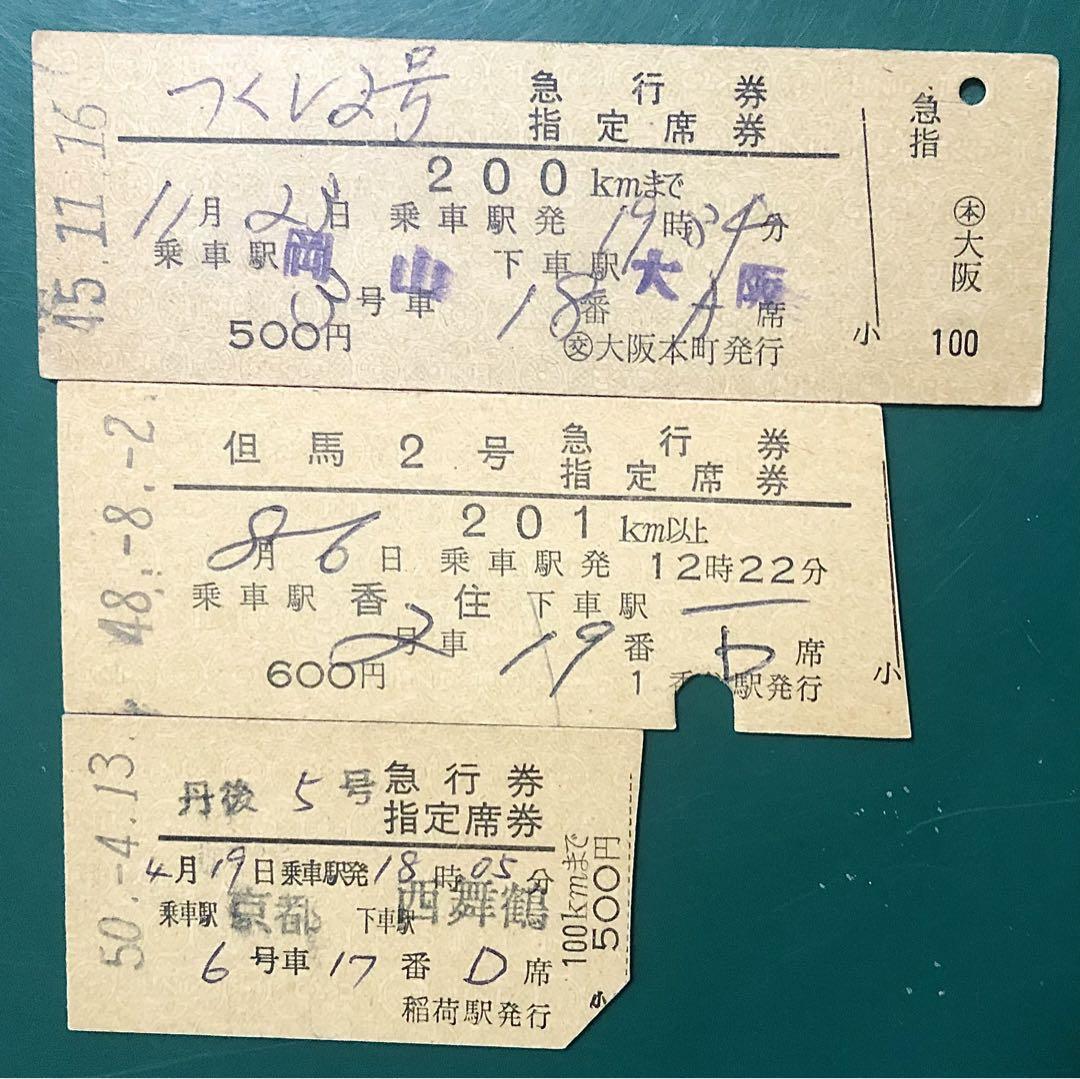 つくし2号 急行券
指定席券
45.11.16
200kmまで
11月2 日 乗車駅発 19時34分
乗車駅 岡山 下車駅 大阪
号車 18番 A席
500円 交大阪本町発行
小
急指
本大阪
100
但馬2号 急行券
指定席券
48.-8.-2
201km以上
8月6日 乗車駅発 12時22分
乗車駅 香住 下車駅
2号車 19番 D席
600円 1 駅発行
小
丹後5号 急行券
指定席券
50.-4.13
4月19日乗車駅発18時05分
乗車駅 京都 下車駅 西舞鶴
6号車17番D席
稲荷駅発行
100kmまで
500円
小